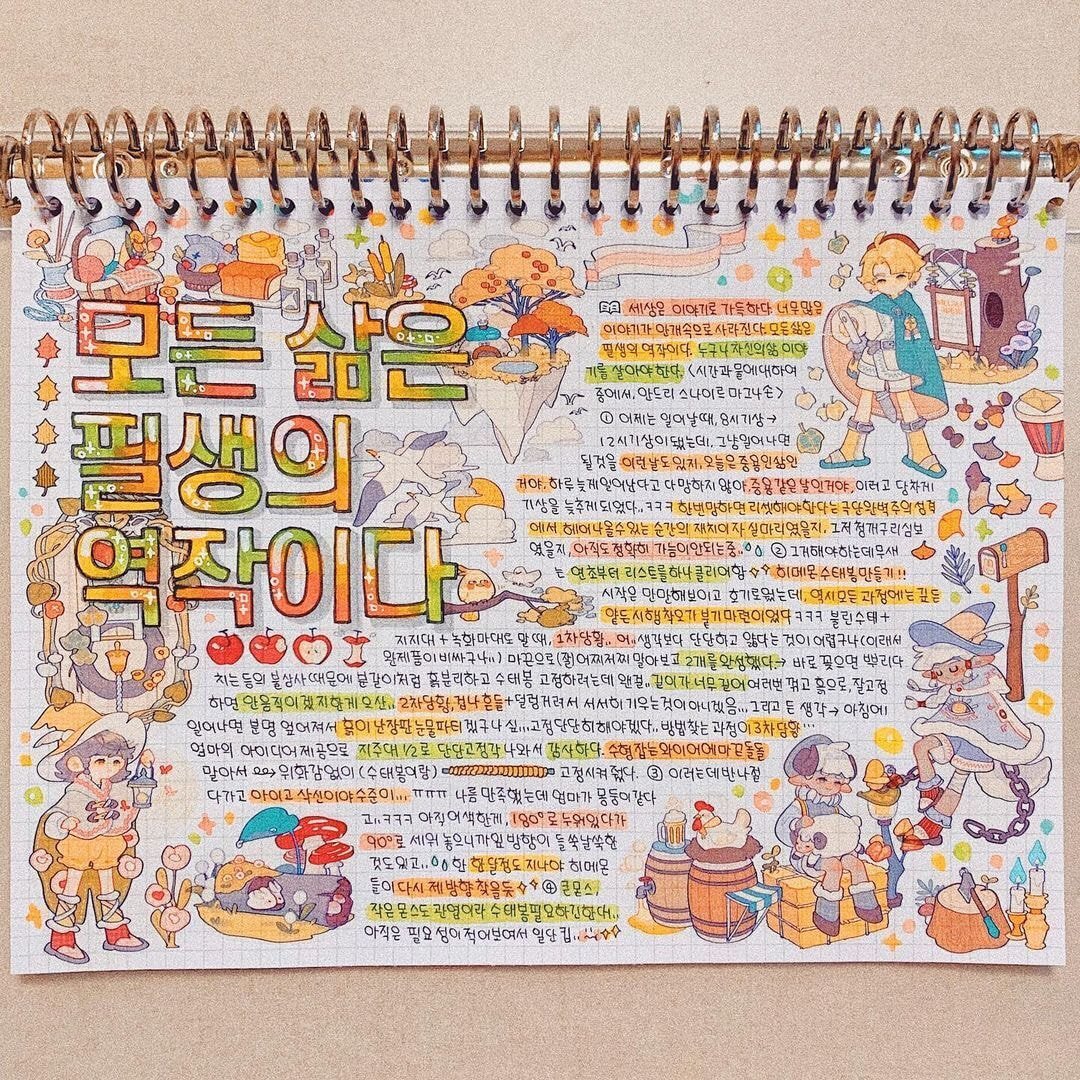 모든 삶은
필생의
역작이다
세상은 이야기로 가득하다 너무많은
이야기가 안개속으로 사라진다. 모든삶은
필생의 역작이다. 누구나 자신의삶 이야
기를 살아야한다. <시간과물에대하여
중에서, 안드리 스나이르 마그나손>
① 이제는 일어날때, 8시기상→
12시기상이됐는데, 그냥일어나면
될것을 이런날도있지, 오늘은중용인삶인
거야, 하루늦게일어났다고 다망하지않아, 중용같은날인거야, 이러고 당차게
기상을 늦추게되었다..ㅋㅋㅋ 한번망하면리셋해야한다는극단완벽주의성격
에서 헤어나올수있는 순간의 재치이자실마리였을지, 그저청개구리심보
였을지, 아직도정확히 가늠이안되는중.. ② 그거해야하는데무새
는 연초부터 리스트를하나클리어함 히메몬수태봉만들기!!
시작은 만만해보이고 호기로웠는데, 역시모든과정에는깊든
얕든시행착오가 붙기마련이었다ㅋㅋㅋ 블린수태+
지지대+녹화마대도말때, 1차당황.. 어..생각보다 단단하고 얇다는것이어렵구나(이래서
완제품이비싸구나..) 마끈으로(꽝)어찌저찌말아보고 2개를완성했다→ 바로꽂으면뿌리다
치는등의 불상사때문에 분갈이처럼 흙분리하고 수태봉 고정하려는데왠걸..길이가너무길어여러번꺾고흙으로, 잘고정
하면 안움직이겠지한게오산.. 2차당황, 겁나흔들+덜렁거려서 서서히기우는것이아니겠음...그리고든생각→아침에
일어나면 분명 엎어져서 흙이난장판눈물파티겠구나싶...고정단단히해야겠다.. 방법찾는과정이3차당황
엄마의 아이디어제공으로 지주대1/2로 단단고정각나와서 감사하다. 수형잡는와이어에마끈돌돌
말아서 위화감없이(수태봉이랑) 고정시켜줬다. ③ 이러는데반나절
다가고 아이고삭신이야수준이... ㅠㅠㅠ 나름만족했는데 엄마가 몽둥이같다
고..ㅋㅋㅋ 아직어색한게, 180°로누워있다가
90°로 세워놓으니까잎방향이 들쑥날쑥한
것도있고.. 한 한달정도지나야 히메몬
들이다시제방향찾을듯 ④ 큰몬스,
작은몬스도관엽이라 수태봉필요하긴한데..
아직은 필요성이적어보여서 일단킵..